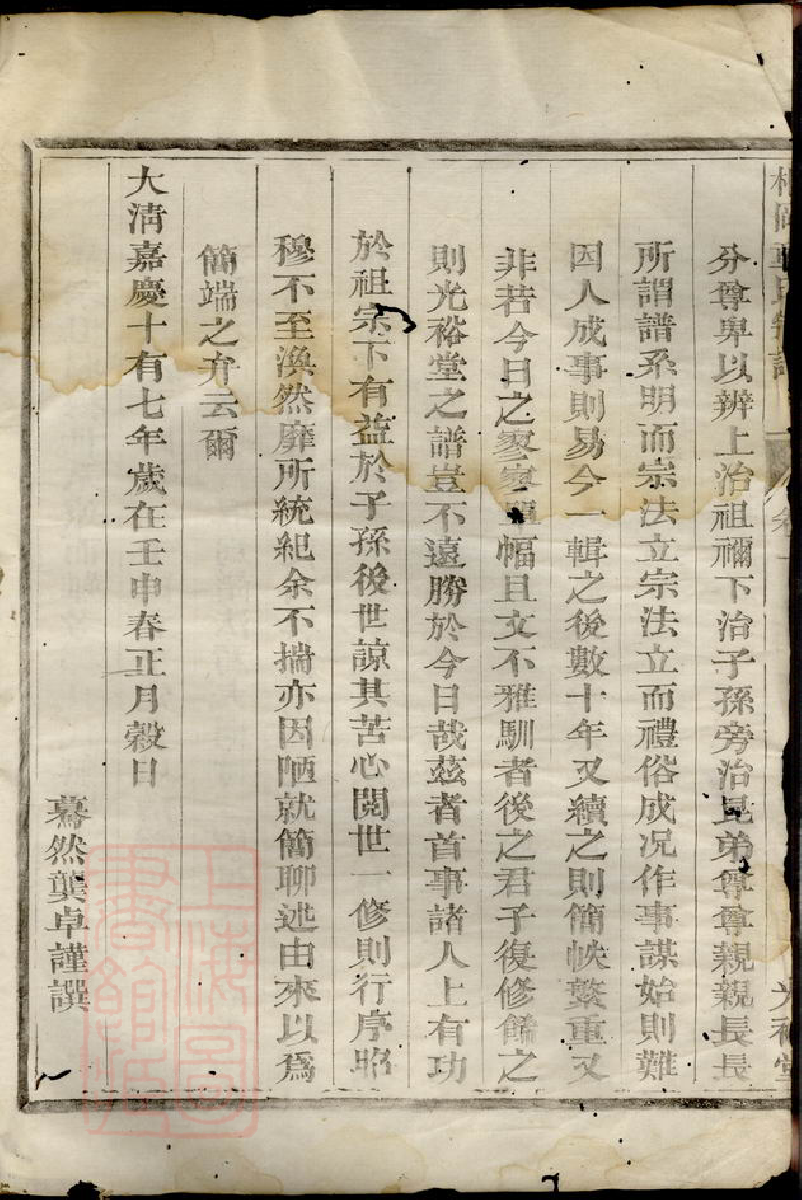 氏宗譜 卷一 光裕堂
分尊卑以辨上治祖禰下治子孫旁治昆弟尊尊親親長長
所謂譜系明而宗法立宗法立而禮俗成况作事謀始則難
因人成事則易今一輯之後數十年又續之則簡帙繁重又
非若今日之寥寥單幅且文不雅馴者後之君子復修餙之
則光裕堂之譜豈不遠勝於今日哉茲者首事諸人上有功
於祖宗下有益於子孫後世諒其苦心閱世一修則行序昭
穆不至渙然靡所統紀余不揣亦因陋就簡聊述由來以爲
簡端之弁云爾
大淸嘉慶十有七年歲在壬申春正月穀日
驀然龔卓謹譔
上海圖書館藏